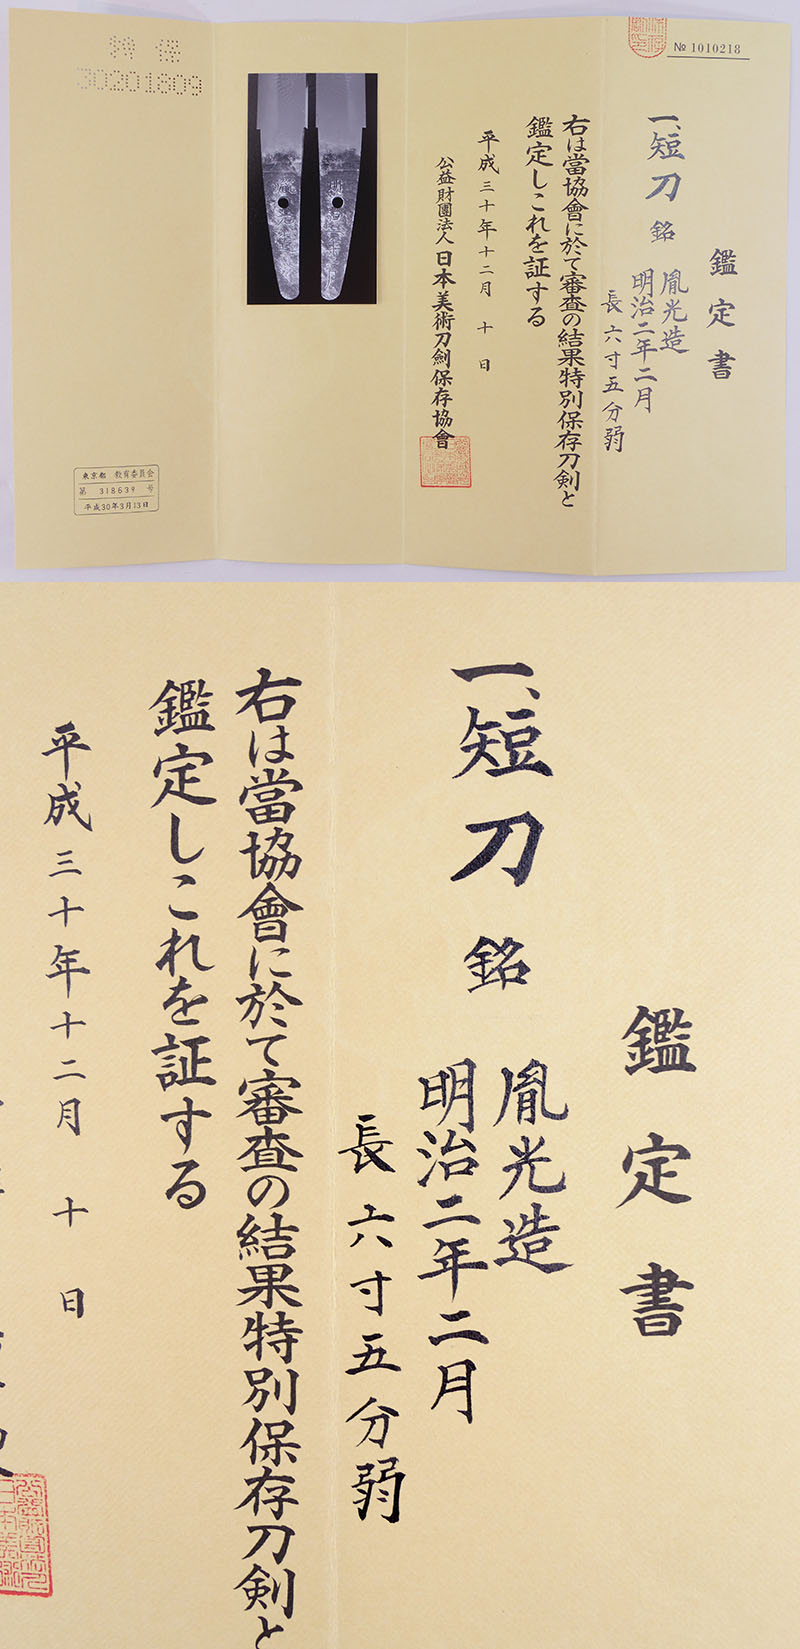 № 1010218
鑑定書
一、短刀 銘 胤光造
明治二年二月
長六寸五分弱
右は當協會に於て審査の結果特別保存刀剣と
鑑定しこれを証する
平成三十年十二月 十 日
公益財團法人 日本美術刀劍保存協會
特保
30201809
東京都 教育委員会
第 318639 号
平成30年3月13日
鑑定書
一、短刀 銘 胤光造
明治二年二月
長六寸五分弱
右は當協會に於て審査の結果特別保存刀剣と
鑑定しこれを証する
平成三十年十二月 十 日